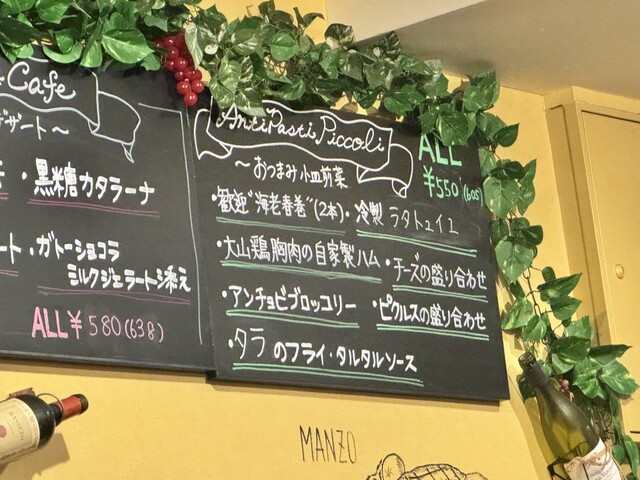 Cafe
デザート～
・黒糖カタラーナ
ート・ガトーショコラ
ミルクジェラート添え
ALL ¥580(638)
AntiPasti Piccoli
～おつまみ小皿前菜
ALL
¥550(605)
・歓迎"海老春巻"(2本)・冷製ラタトゥイユ
・大山鶏胸肉の自家製ハム・チーズの盛り合わせ
・アンチョビブロッコリー・ピクルスの盛り合わせ
・タラのフライ・タルタルソース
MANZO